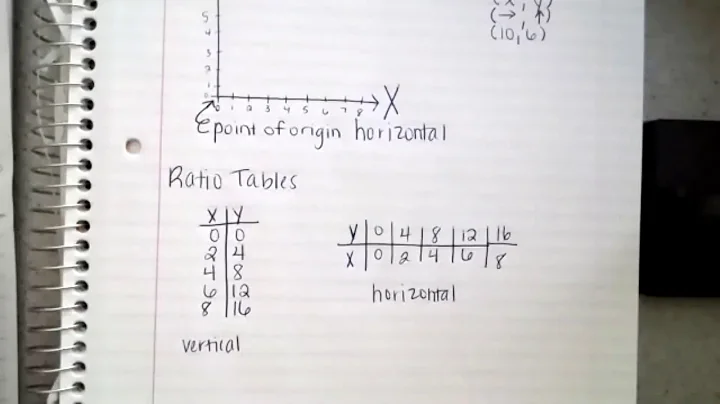 (x, y)
(→, ↑)
(10,6)
5
4
3
2
1
0
0 1 2 3 4 5 6 7 8 X
point of origin horizontal
Ratio Tables
X Y
0 0
2 4
4 8
6 12
8 16
vertical
Y 0 4 8 12 16
X 0 2 4 6 8
horizontal